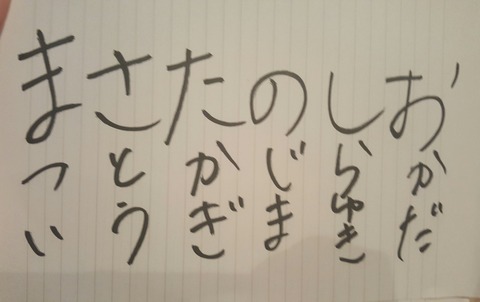 おかだ
しらゆき
のじま
たかぎ
さとう
まつい